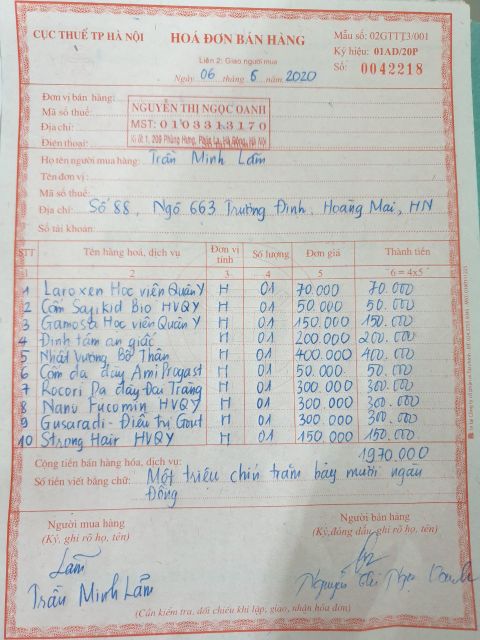 CỤC THUẾ TP HÀ NỘI
HOÁ ĐƠN BÁN HÀNG
Mẫu số: 02GTTT3/001
Ký hiệu: 01AD/20P
Liên 2: Giao người mua
Số: 0042218
Ngày 06 tháng 6 năm 2020
Đơn vị bán hàng:
NGUYỄN THỊ NGỌC OANH
Mã số thuế:
MST: 0103313170
Địa chỉ:
Ki ốt 1, 209 Phùng Hưng, Phúc La, Hà Đông, Hà Nội
Điện thoại:
Họ tên người mua hàng: Trần Minh Lâm
Tên đơn vị:
Mã số thuế:
Địa chỉ: Số 88, Ngõ 663 Trương Định, Hoàng Mai, HN
Số tài khoản:
STT Tên hàng hoá, dịch vụ Đơn vị tính Số lượng Đơn giá Thành tiền
1 2 3 4 5 6 = 4x5
1 Laroxen Học viện Quân Y H 01 70.000 70.000
2 Cốm Sajikid Bio HVQY H 01 50.000 50.000
3 Gamosta Học viện Quân Y H 01 150.000 150.000
4 Định tâm an giấc H 01 200.000 200.000
5 Nhất Vương Bổ Thận H 01 400.000 400.000
6 Cốm dạ dày Ami Pragast H 01 50.000 50.000
7 Rocori Dạ dày Đại Tràng H 01 300.000 300.000
8 Nano Fucomin HVQY H 01 300.000 300.000
9 Gusaradi - Điều trị Gout H 01 300.000 300.000
10 Strong Hair HVQY H 01 150.000 150.000
Cộng tiền bán hàng hóa, dịch vụ: 1970.000
Số tiền viết bằng chữ: Một triệu chín trăm bảy mươi ngàn
Đồng
Người mua hàng
(Ký, ghi rõ họ, tên)
Người bán hàng
(Ký, đóng dấu, ghi rõ họ, tên)
Lâm
Trần Minh Lâm
Nguyễn Thị Ngọc Oanh
(Cần kiểm tra, đối chiếu khi lập, giao, nhận hóa đơn)